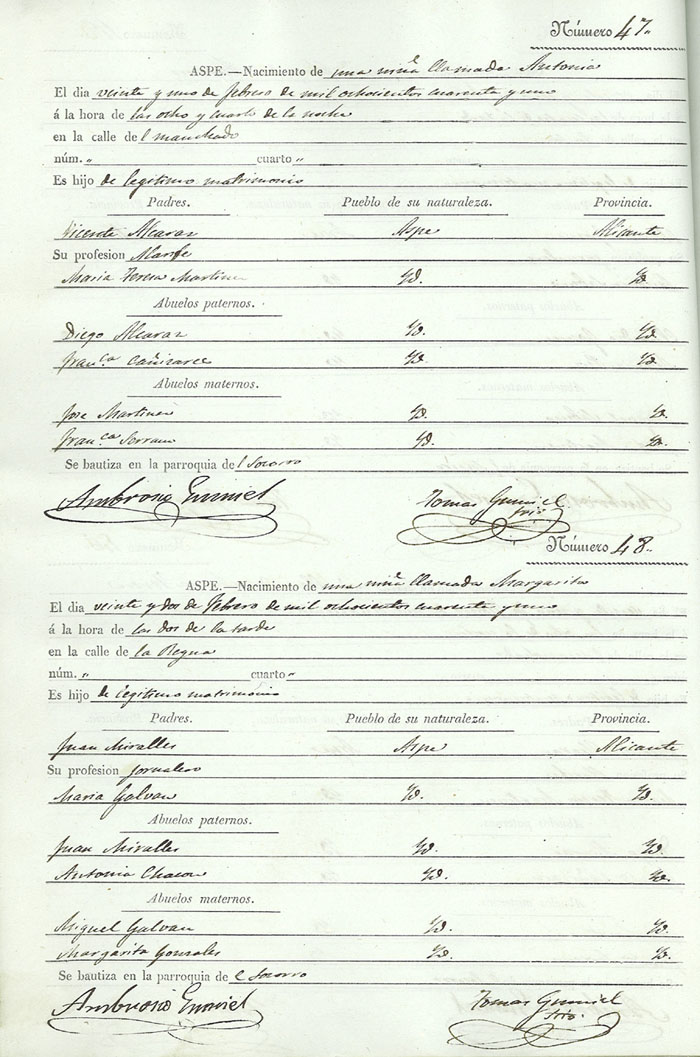 Número 47„
ASPE.—Nacimiento de una niña llamada Antonia
El dia veinte y uno de febrero de mil ochocientos cuarenta y uno
á la hora de las ocho y cuarto de la noche
en la calle del manchado
núm. „ cuarto „
Es hijo de legitimo matrimonio
Padres. Pueblo de su naturaleza. Provincia.
Vicente Alcaraz Aspe Alicante
Su profesion
Maria Teresa Martinez Yd. Yd.
Abuelos paternos.
Diego Alcaraz Yd. Yd.
Fran.ca Cañizares Yd. Yd.
Abuelos maternos.
Jose Martinez Yd. Yd.
Fran.ca Serrano Yd. Yd.
Se bautiza en la parroquia del Socorro
Ambrosio Tomas Gumiel
Srio.
Número 48„
ASPE.—Nacimiento de una niña llamada Margarita
El dia veinte y dos de febrero de mil ochocientos cuarenta y uno
á la hora de las dos de la tarde
en la calle de la
núm. „ cuarto „
Es hijo de legitimo matrimonio
Padres. Pueblo de su naturaleza. Provincia.
Juan Miralles Aspe Alicante
Su profesion jornalero
Maria Galvan Yd. Yd.
Abuelos paternos.
Juan Miralles Yd. Yd.
Antonia Chacon Yd. Yd.
Abuelos maternos.
Miguel Galvan Yd. Yd.
Margarita Gonzales Yd. Yd.
Se bautiza en la parroquia de el Socorro
Ambrosio Tomas Gumiel
Srio.